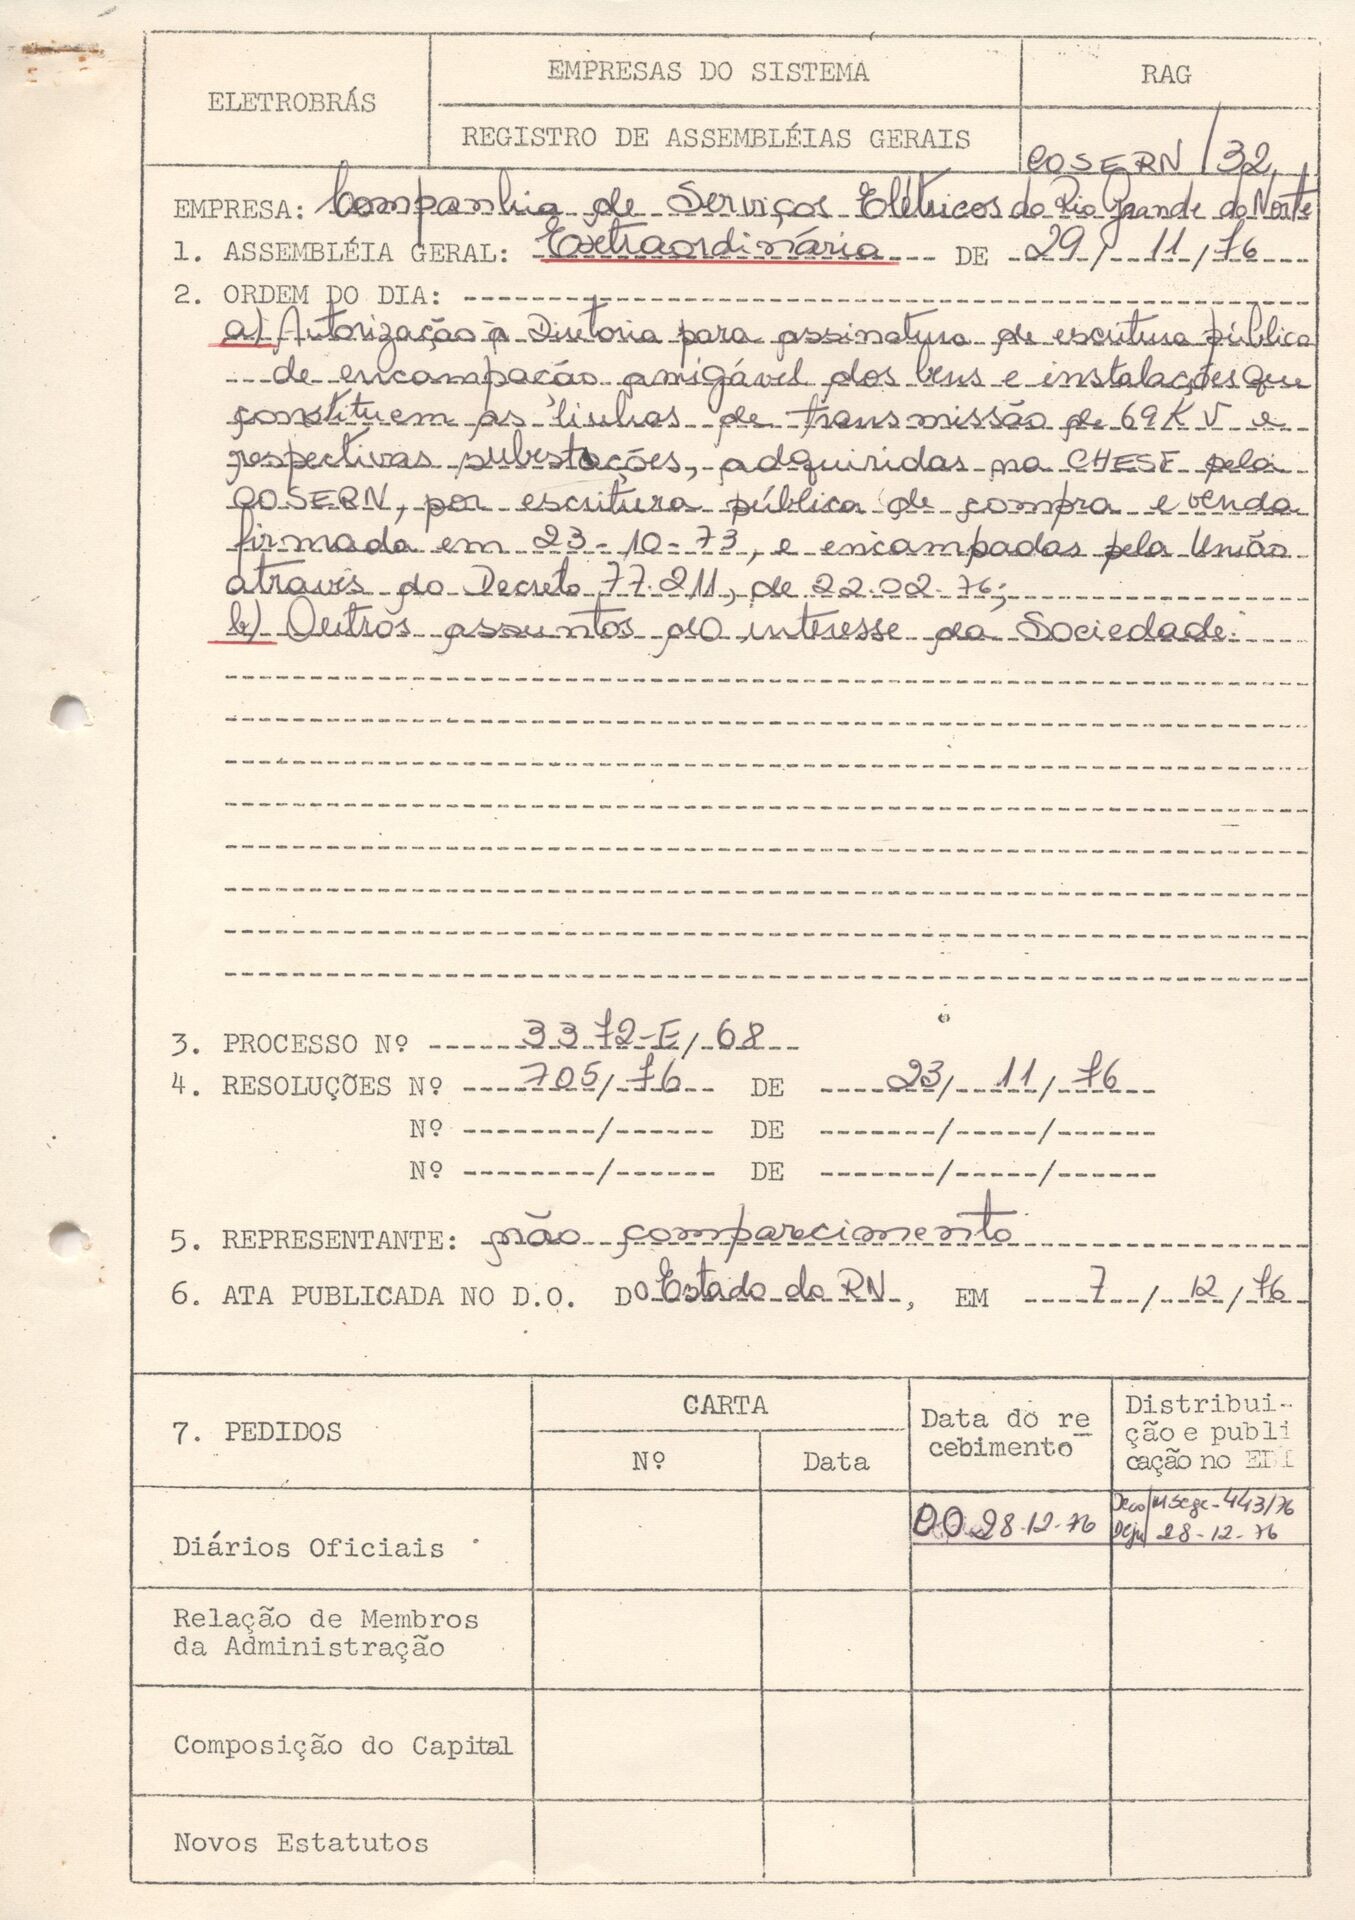 ELETROBRÁS
EMPRESAS DO SISTEMA
REGISTRO DE ASSEMBLÉIAS GERAIS
RAG
COSERN/32
EMPRESA: Companhia de Serviços Elétricos do Rio Grande do Norte
1. ASSEMBLÉIA GERAL: Extraordinária DE 29/11/76
2. ORDEM DO DIA:
a) Autorização à Diretoria para assinatura de escritura pública
de encampação amigável dos bens e instalações que
constituem as linhas de transmissão de 69 KV e
respectivas subestações, adquiridas na CHESF pela
COSERN, por escritura pública de compra e venda
firmada em 23-10-73, e encampadas pela União
através do Decreto 77.211, de 22.02.76;
b) Outros assuntos do interesse da Sociedade.
3. PROCESSO Nº 3372-E/68
4. RESOLUÇÕES Nº 705/76 DE 23/11/76
Nº / DE / /
Nº / DE / /
5. REPRESENTANTE: não comparecimento
6. ATA PUBLICADA NO D.O. DO Estado do RN, EM 7/12/76
7. PEDIDOS
CARTA
Nº
Data
Data do re
cebimento
Distribui-
ção e publi
cação no
Diários Oficiais
DO 28.12.76
443/76
28-12-76
Relação de Membros
da Administração
Composição do Capital
Novos Estatutos